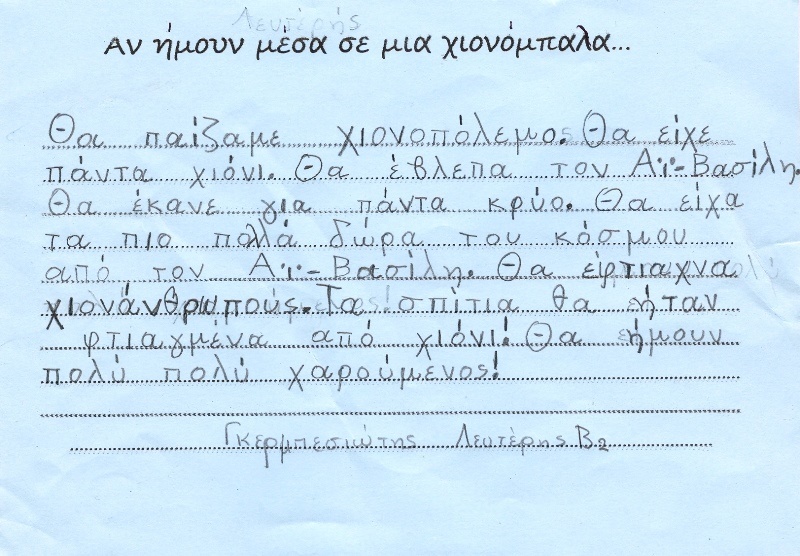 Λευτέρης
Αν ήμουν μέσα σε μια χιονόμπαλα...
Θα παίζαμε χιονοπόλεμο. Θα είχε
πάντα χιόνι. Θα έβλεπα τον Αϊ-Βασίλη.
Θα έκανε για πάντα κρύο. Θα είχα
τα πιο πολλά δώρα του κόσμου
από τον Αϊ-Βασίλη. Θα έφτιαχνα
χιονάνθρωπους. Τα σπίτια θα ήταν
φτιαγμένα από χιόνι! Θα ήμουν
πολύ πολύ χαρούμενος!
Γκερμπεσιώτης Λευτέρης Β2